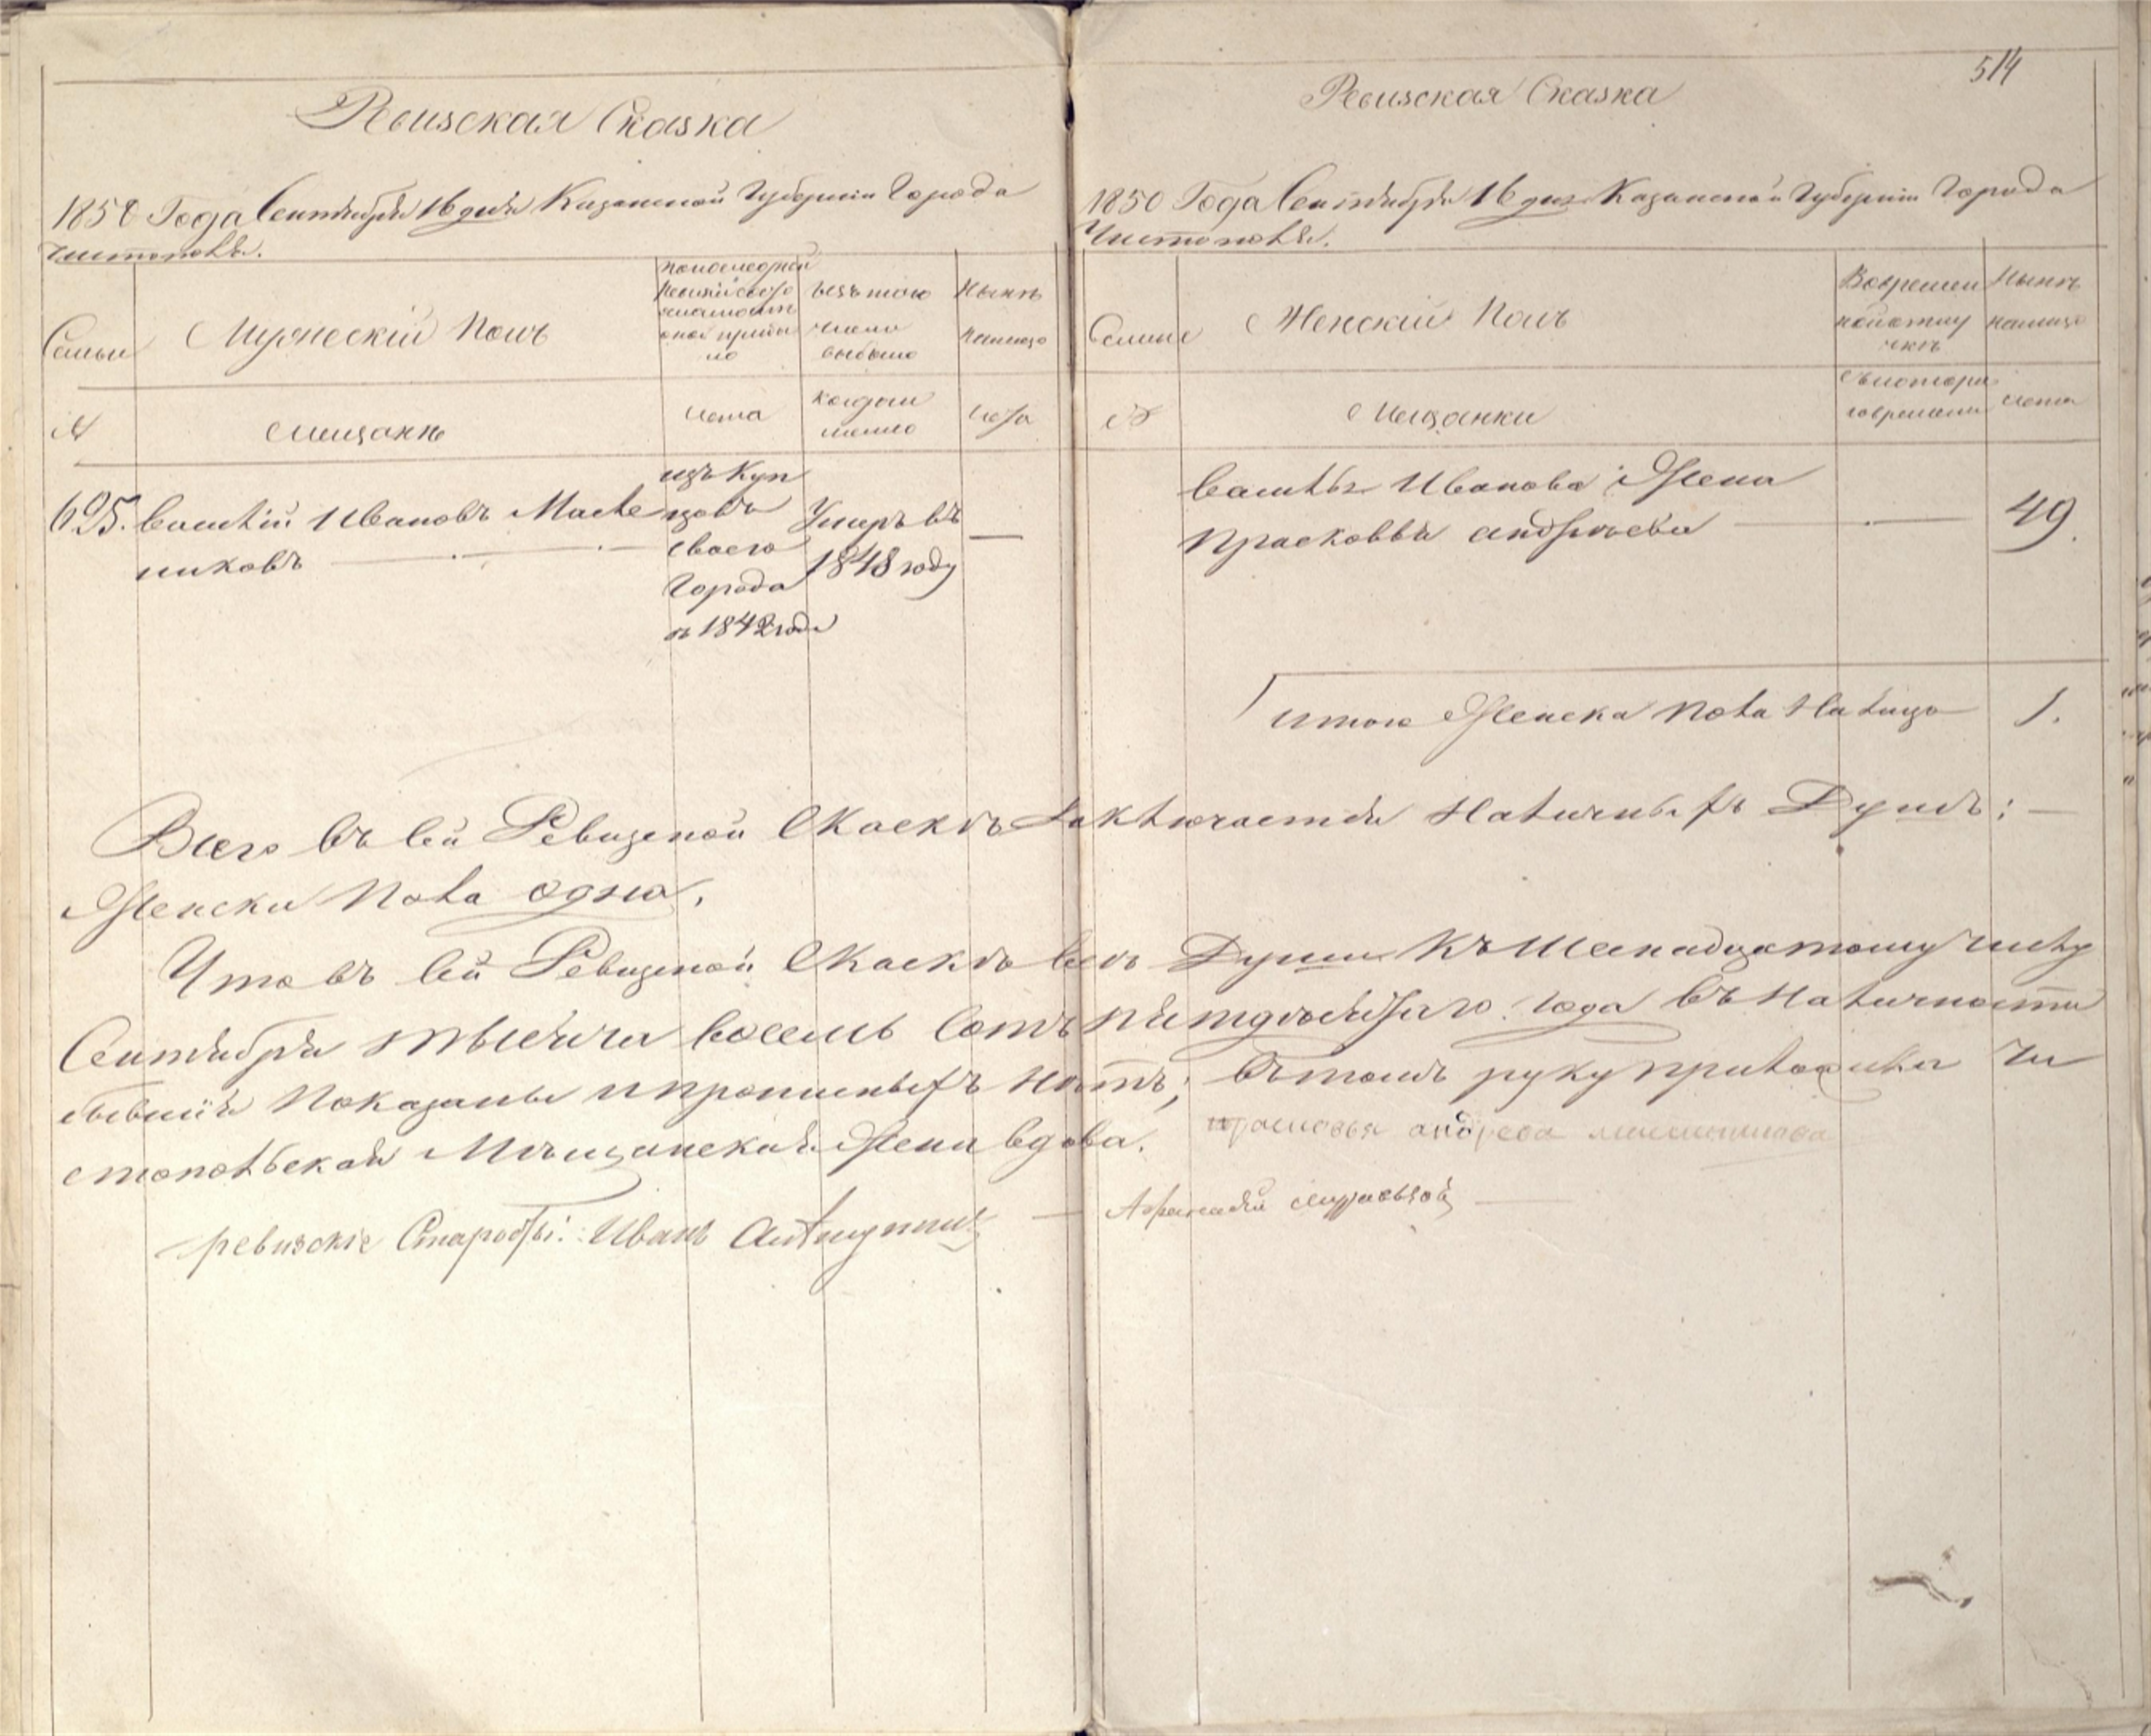 Ревизская Сказка
1850 Года Сентября 16 дня Казанской Губернии Города
Чистополя.
Семьи
Мужескій Полъ
по последней
ревизіи состо
яло и после
оной прибы
ло
Изъ того
числа
выбыло
Ныне
налицо
№
мещане
лета
когда и
менно
лета
695. Василій Ивановъ Масле
никовъ
изъ Куп
цовъ
своего
города
съ 1842 года
Умеръ въ
1848 году
—
514
Ревизская Сказка
1850 Года Сентября 16 дня Казанской Губерніи Города
Чистополя.
Семьи
Женскій Полъ
Во временной
отлу
чке
Ныне
налицо
№
Мещанки
съ котора
го времени
лета
Василья Иванова Жена
Прасковья Андреева
49.
итого Женска Пола Налицо 1.
Всего въ сей Ревизской Скаске заключается Наличныхъ Душъ: —
Женска Пола одна.
Что въ сей Ревизской Скаске все Души Къ Шеснадцатому числу
Сентября тысяча восемь сотъ пятдесятаго года въ Наличности
бывшія Показаны и прописныхъ нетъ; въ томъ руку приложила Чи
стопольская Мещанская Жена вдова. прасковья андреева масленикова
ревизскіе Старосты: Иванъ